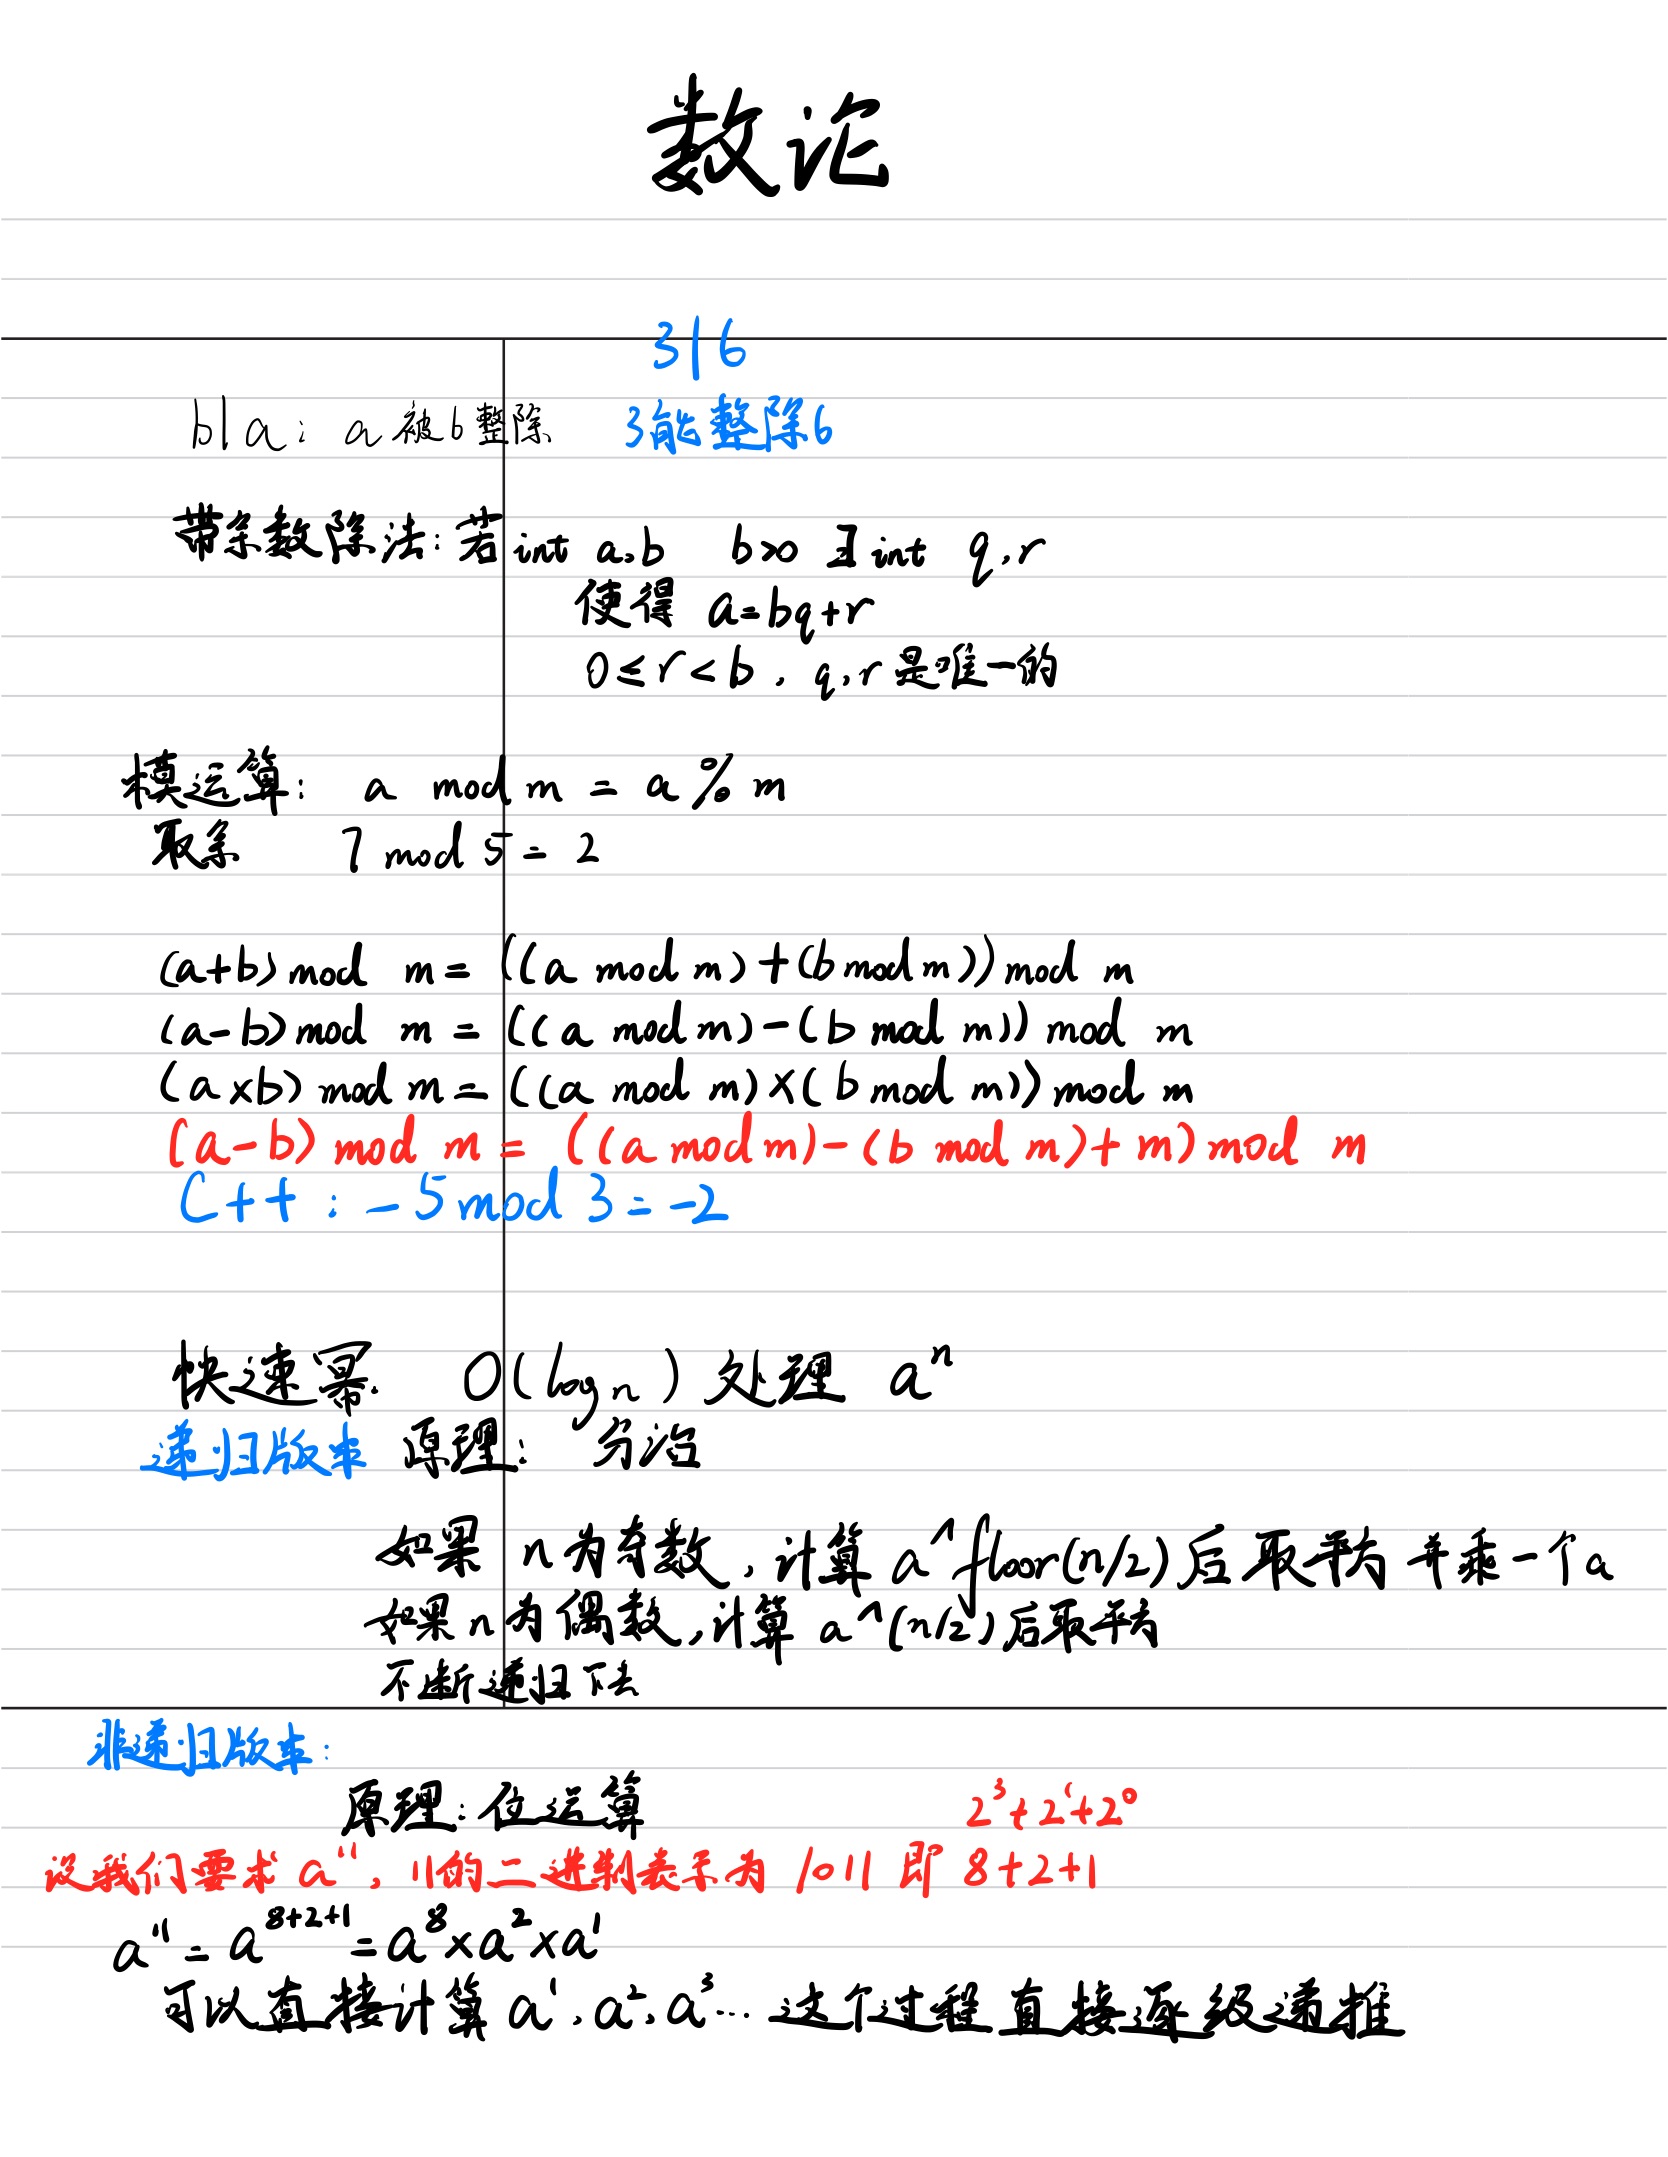 数论
3|6
b|a: a被b整除 3能整除6
带余数除法:若int a,b b>0 ∃int q,r
使得 a=bq+r
0≤r<b, q,r是唯一的
模运算: a mod m = a % m
取余 7 mod 5 = 2
(a+b) mod m = ((a mod m)+(b mod m)) mod m
(a-b) mod m = ((a mod m)-(b mod m)) mod m
(a×b) mod m = ((a mod m)×(b mod m)) mod m
(a-b) mod m = ((a mod m)-(b mod m)+m) mod m
C++: -5 mod 3 = -2
快速幂 O(log n) 处理 aⁿ
递归版本 原理: 分治
如果 n为奇数,计算 a^floor(n/2)后取平方 并乘一个a
如果n为偶数,计算 a^(n/2)后取平方
不断递归下去
非递归版本:
原理:位运算 2³+2¹+2⁰
设我们要求a¹¹, 11的二进制表示为 1011 即 8+2+1
a¹¹=a⁸⁺²⁺¹=a⁸×a²×a¹
可以直接计算 a¹,a²,a³… 这个过程直接逐级递推